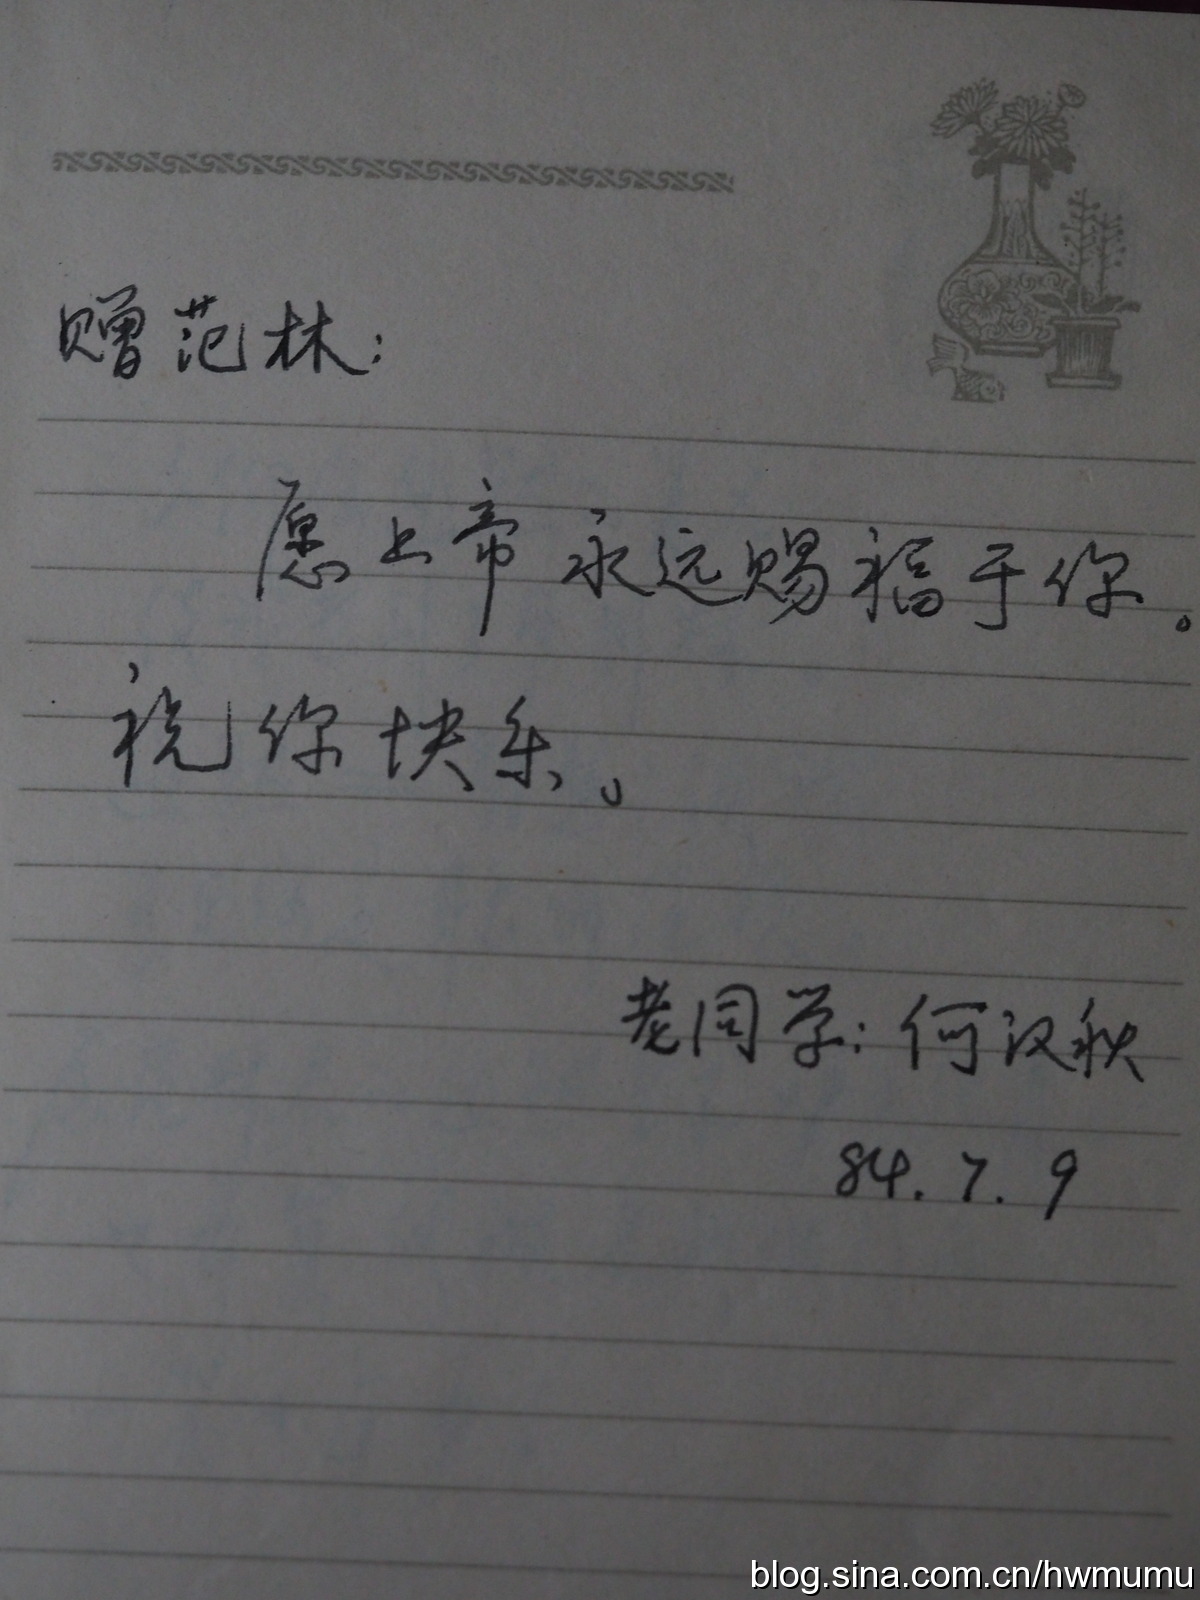 赠范林：
愿上帝永远赐福于你。
祝你快乐。
老同学：何汉秋
84.7.9
blog.sina.com.cn/hwmumu